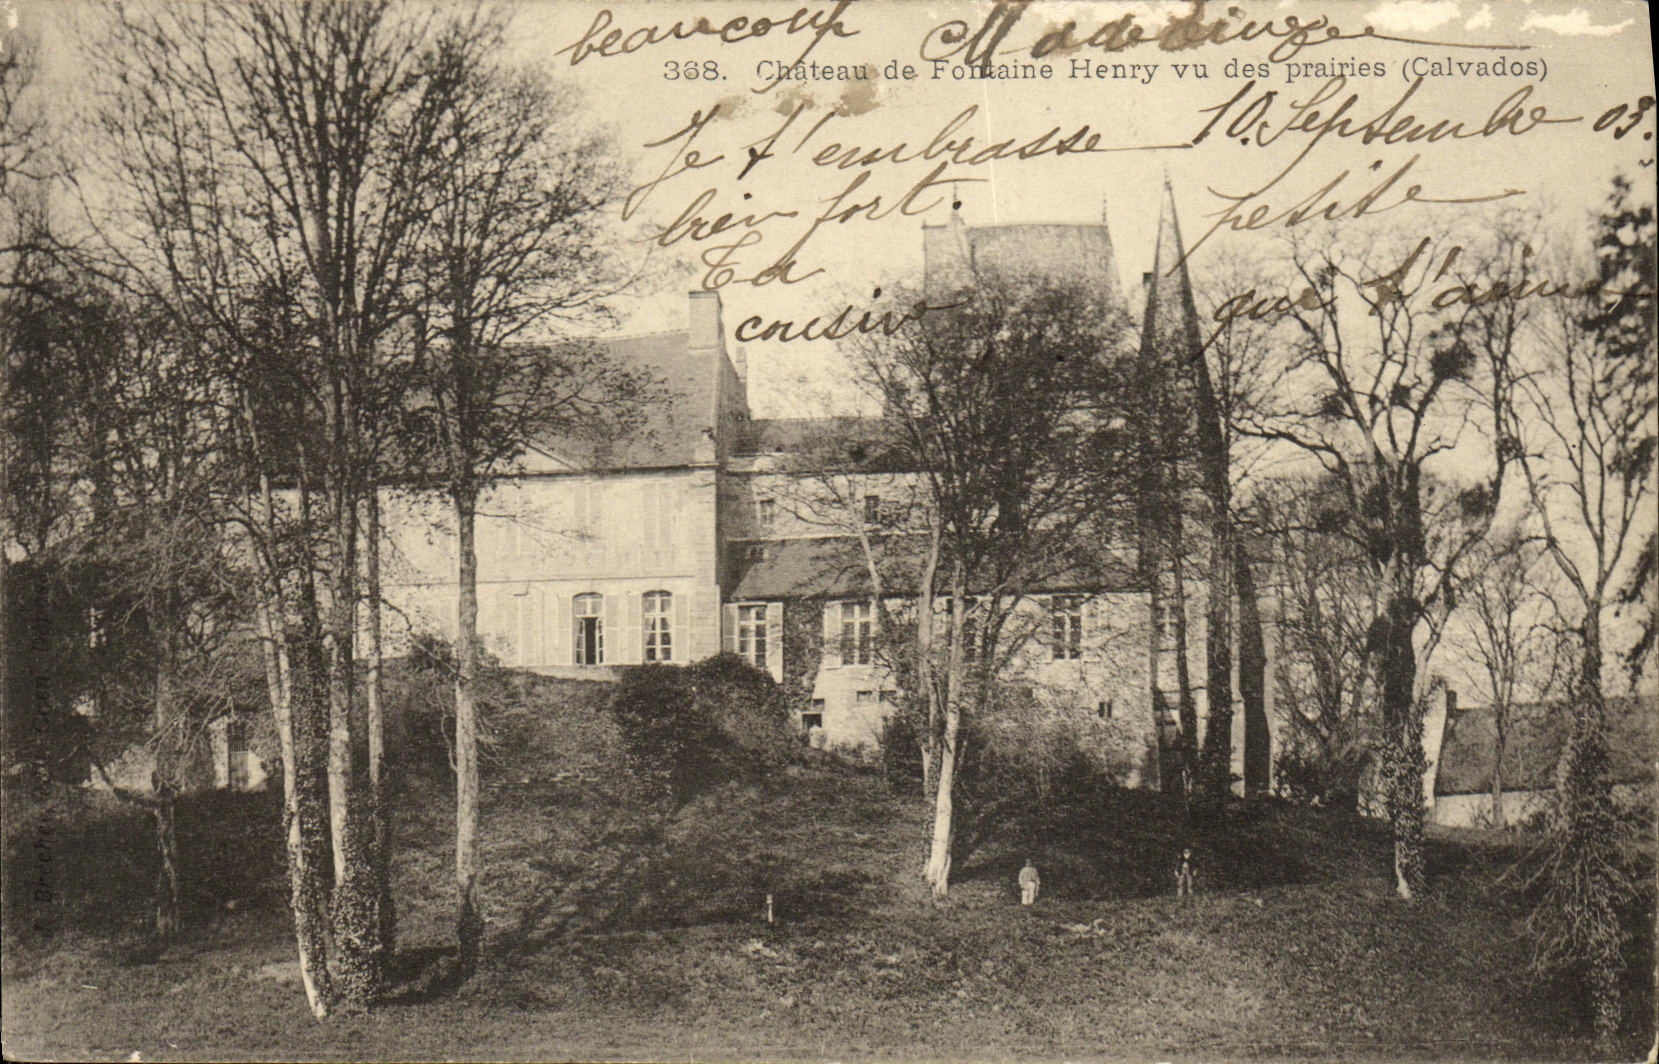 beaucoup
368. Château de Fontaine Henry vu des prairies (Calvados)
10. Septembre 03.
Je t'embrasse
bien fort.
Ta
cousine
petite
qui t'aime